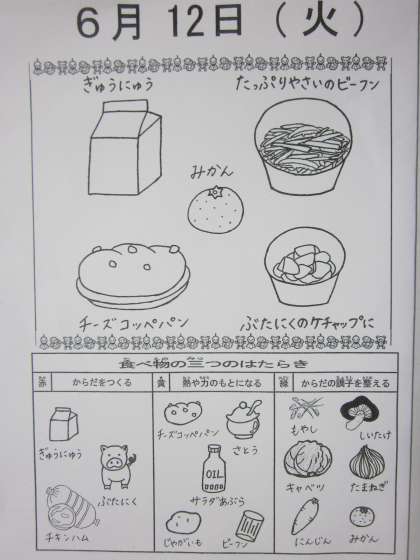 6月 12日 (火)
ぎゅうにゅう
たっぷりやさいのビーフン
みかん
チーズコッペパン
ぶたにくのケチャップに
食べ物の三つのはたらき
赤 からだをつくる
黄 熱や力のもとになる
緑 からだの調子を整える
ぎゅうにゅう
ぶたにく
チキンハム
チーズコッペパン
さとう
OIL
サラダあぶら
じゃがいも
ビーフン
もやし
しいたけ
キャベツ
たまねぎ
にんじん
みかん